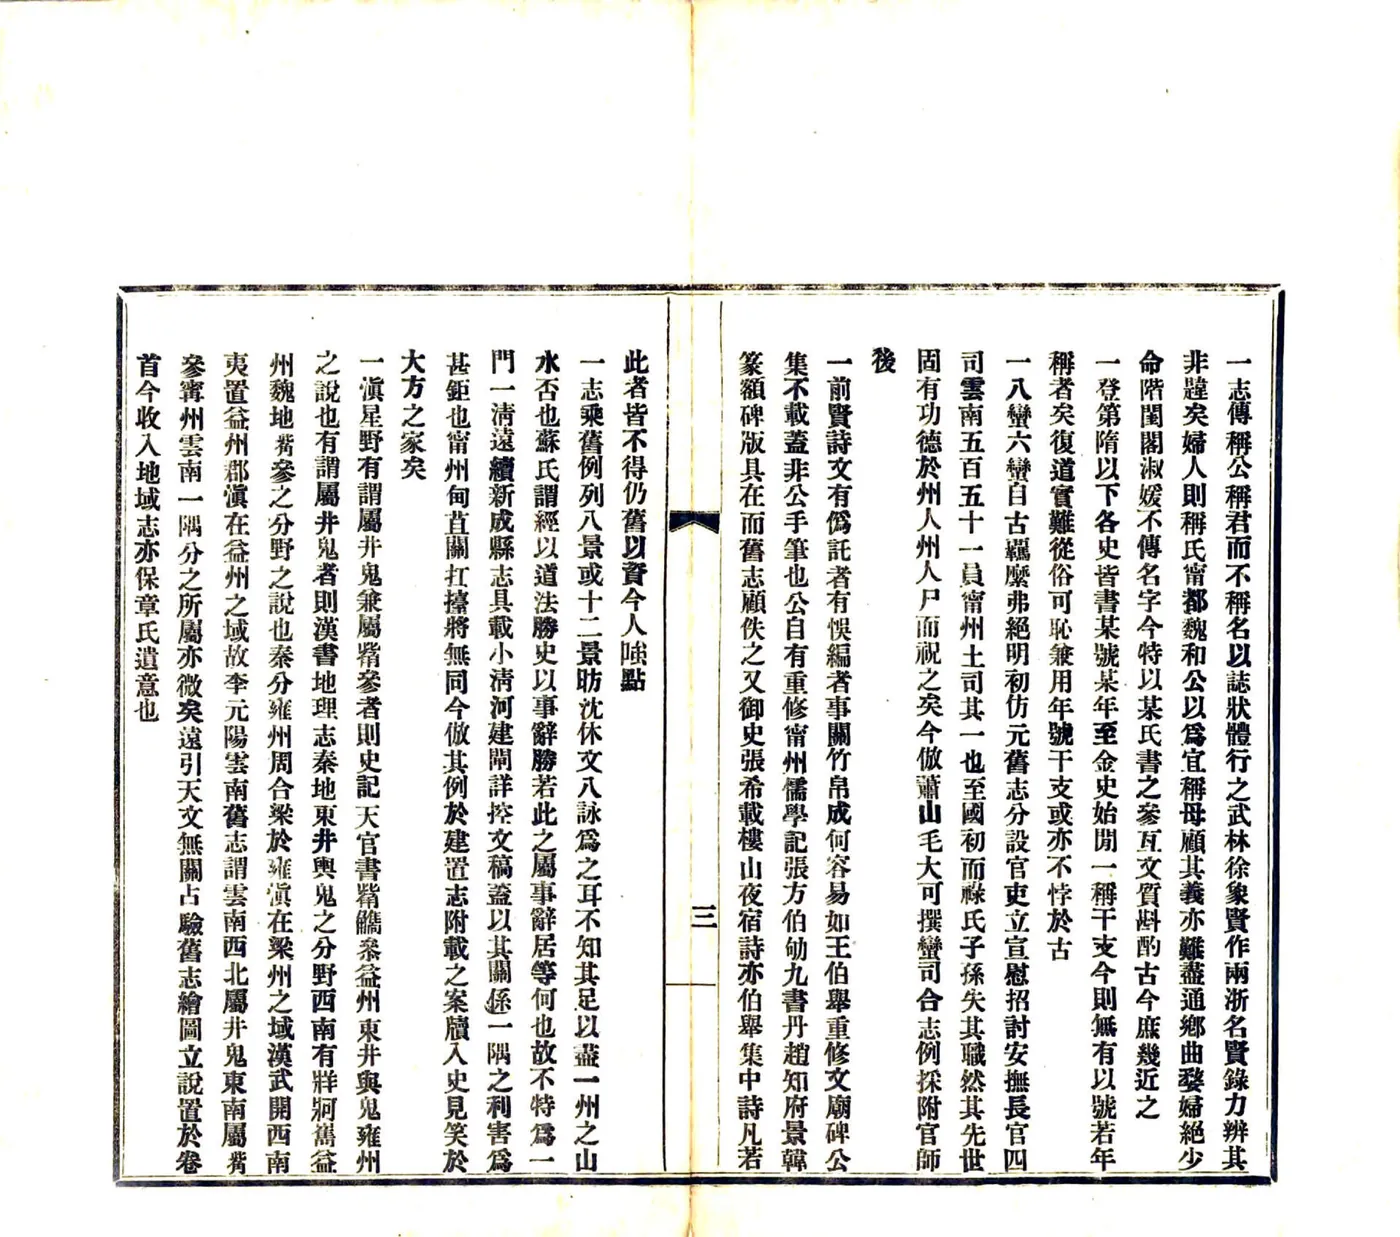 一志傳稱公稱君而不稱名以誌狀體行之武林徐象賢作兩浙名賢錄力辨其
非韙矣婦人則稱氏甯都魏和公以爲宜稱母顧其義亦難盡通鄉曲嫠婦絕少
命階閨閣淑媛不傳名字今特以某氏書之參互文質斟酌古今庶幾近之
一登第隋以下各史皆書某號某年至金史始閒一稱干支今則無有以號若年
稱者矣復道實難從俗可恥兼用年號干支或亦不悖於古
一八蠻六蠻自古羈縻弗絕明初仿元舊志分設官吏立宣慰招討安撫長官四
司雲南五百五十一員甯州土司其一也至國初而祿氏子孫失其職然其先世
固有功德於州人州人尸而祝之矣今倣蕭山毛大可撰蠻司合志例採附官師
後
一前賢詩文有僞託者有悞編者事關竹帛成何容易如王伯舉重修文廟碑公
集不載蓋非公手筆也公自有重修甯州儒學記張方伯劬九書丹趙知府景韓
篆額碑版具在而舊志顧佚之又御史張希載樓山夜宿詩亦伯舉集中詩凡若
三
此者皆不得仍舊以資今人嗤點
一志乘舊例列八景或十二景昉沈休文八詠爲之耳不知其足以盡一州之山
水否也蘇氏謂經以道法勝史以事辭勝若此之屬事辭居等何也故不特爲一
門一淸遠續新成縣志具載小淸河建閘詳控文稿蓋以其關係一隅之利害爲
甚鉅也甯州甸苴關扛擡將無同今倣其例於建置志附載之案牘入史見笑於
大方之家矣
一滇星野有謂屬井鬼兼屬觜參者則史記天官書觜觿參益州東井與鬼雍州
之說也有謂屬井鬼者則漢書地理志秦地東井輿鬼之分野西南有牂牁巂益
州魏地觜參之分野之說也秦分雍州周合梁於雍滇在梁州之域漢武開西南
夷置益州郡滇在益州之域故李元陽雲南舊志謂雲南西北屬井鬼東南屬觜
參甯州雲南一隅分之所屬亦微矣遠引天文無關占驗舊志繪圖立說置於卷
首今收入地域志亦保章氏遺意也